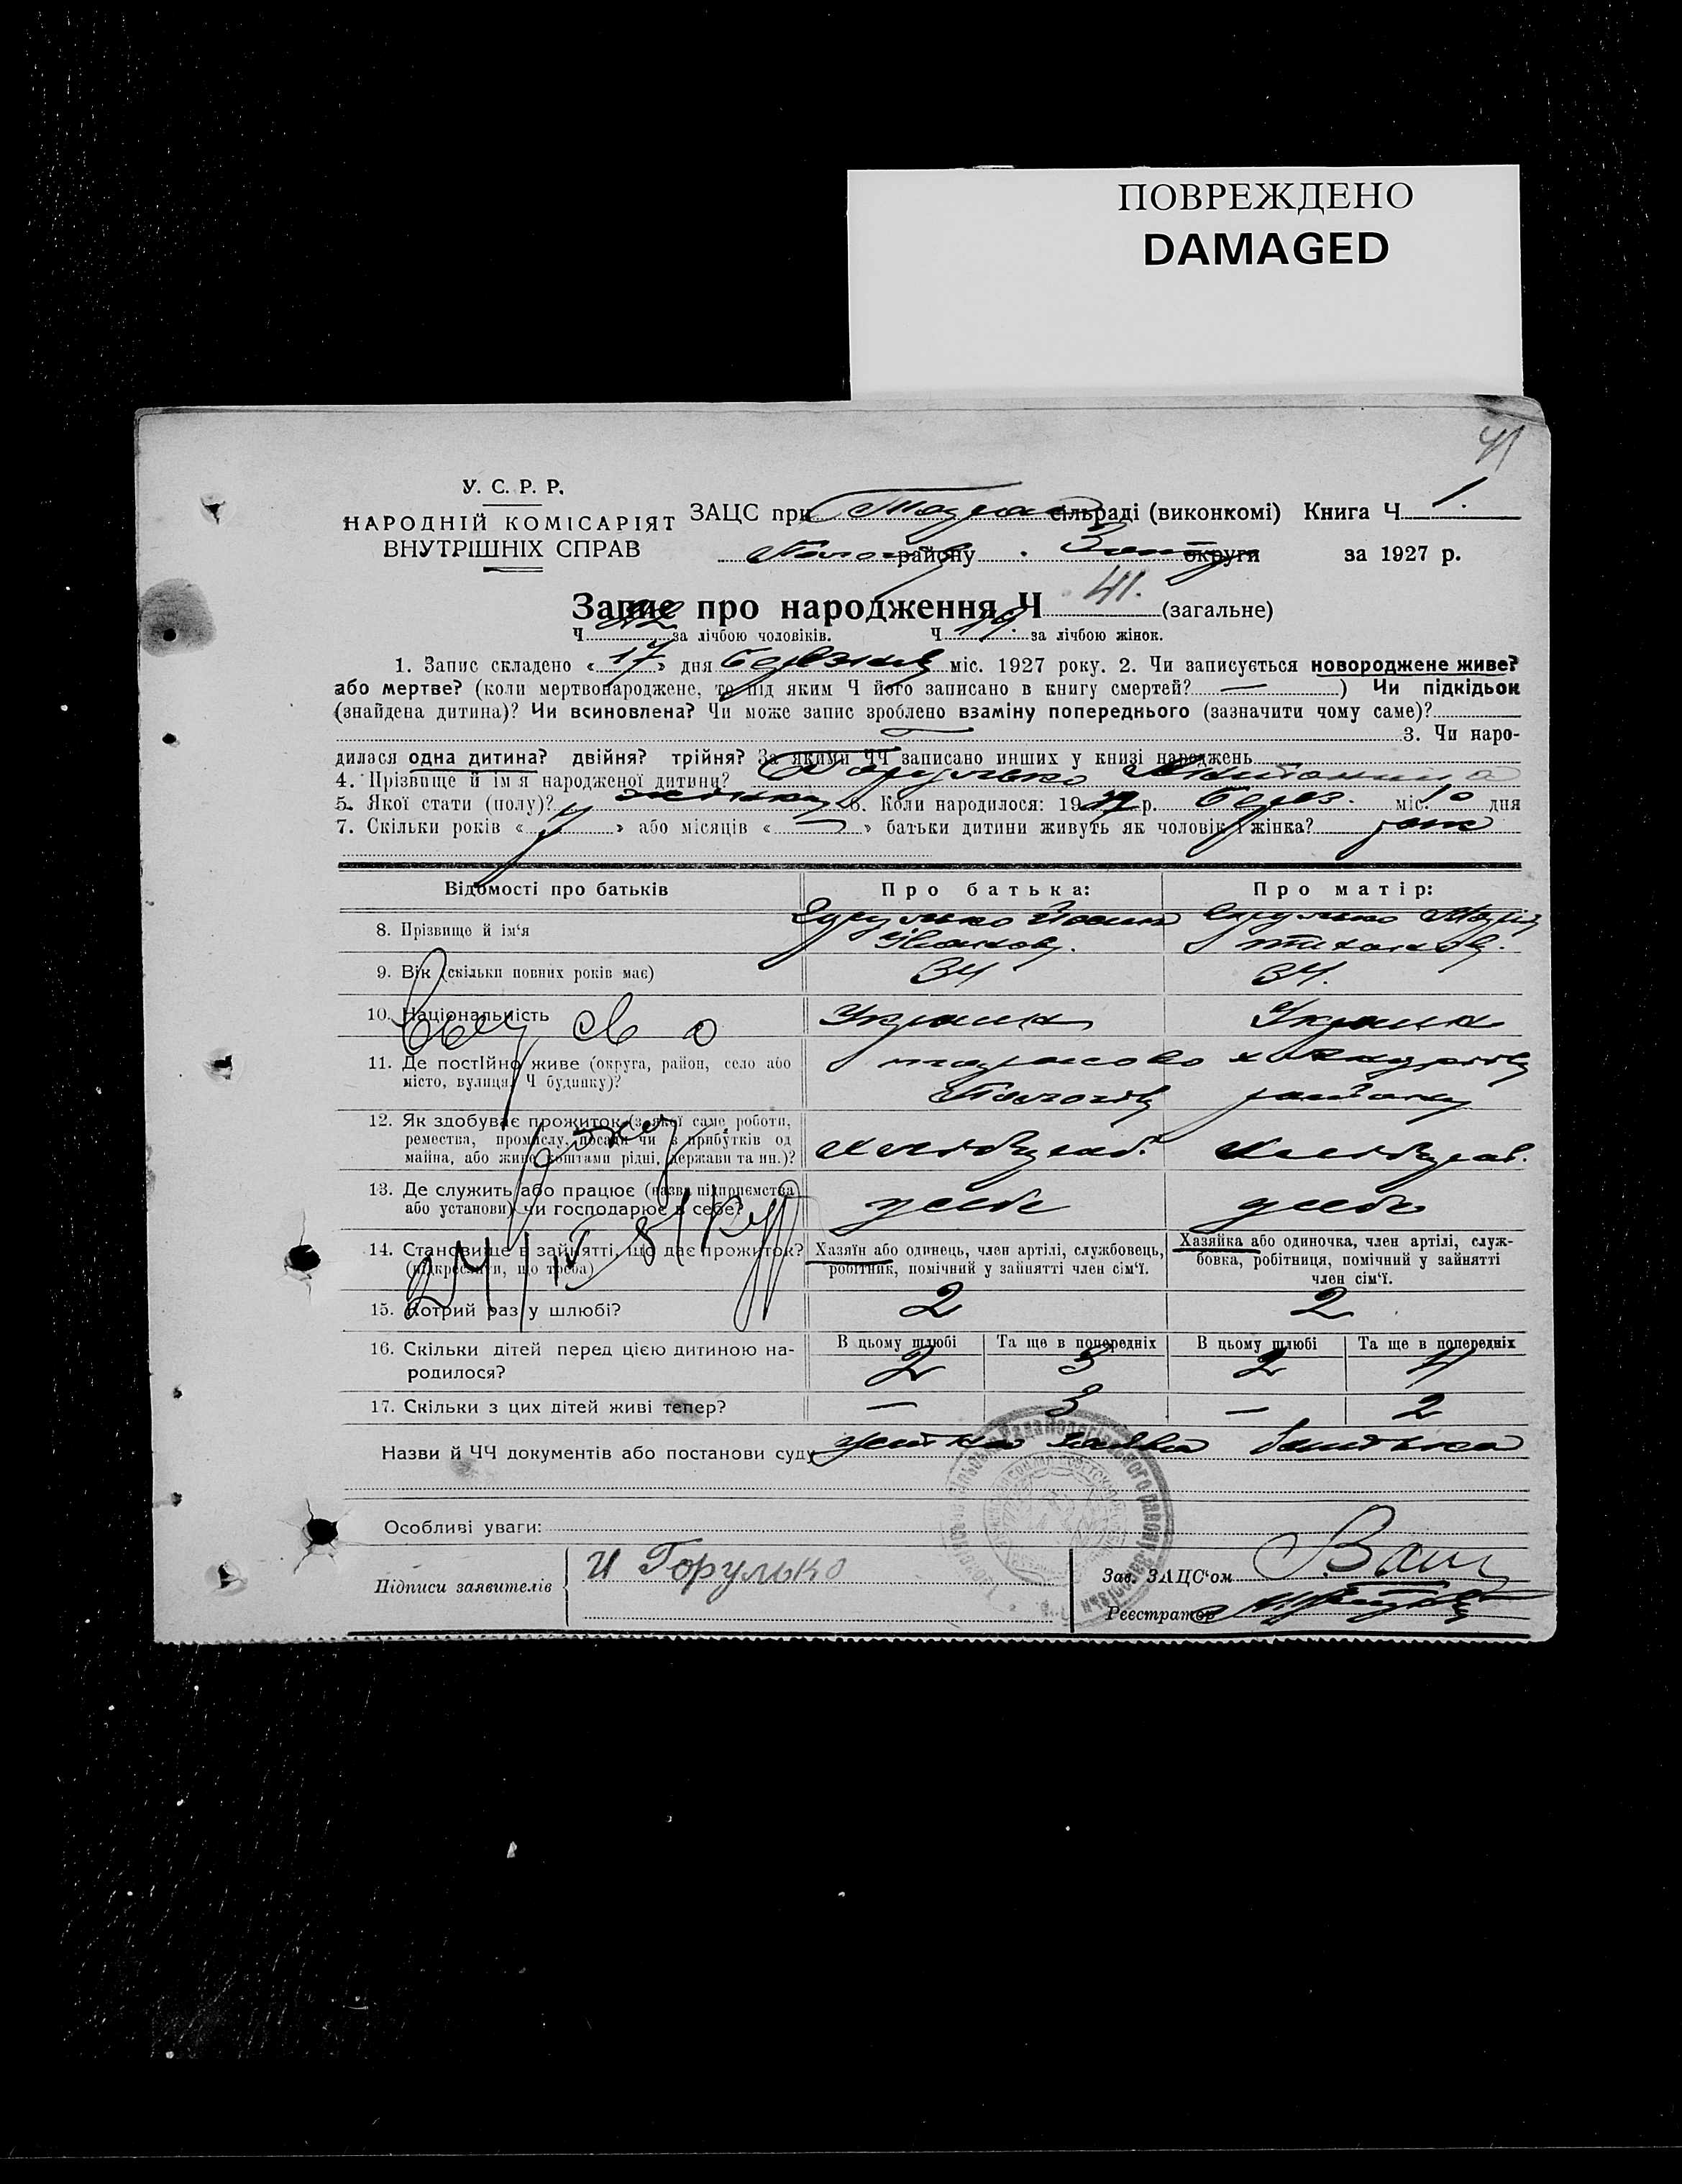 ПОВРЕЖДЕНО
DAMAGED
41
У. С. Р. Р.
НАРОДНІЙ КОМІСАРІЯТ
ВНУТРІШНІХ СПРАВ
ЗАЦС при сільраді (виконкомі) Книга Ч 1.
району округи за 1927 р.
Запис про народження Ч 41. (загальне)
Ч 22 за лічбою чоловіків. Ч 19. за лічбою жінок.
1. Запис складено « 17 » дня березня міс. 1927 року. 2. Чи записується новороджене живе?
або мертве? (коли мертвонароджене, то під яким Ч його записано в книгу смертей? — ) Чи підкідьок
(знайдена дитина)? Чи всиновлена? Чи може запис зроблено взаміну попереднього (зазначити чому саме)?
— 3. Чи наро-
дилася одна дитина? двійня? трійня? За якими ЧЧ записано инших у книзі народжень
4. Прізвище й ім'я народженої дитини? Горулько
5. Якої стати (полу)? 6. Коли народилося: 1927 р. берез. міс. 10 дня
7. Скільки років « » або місяців « — » батьки дитини живуть як чоловік і жінка?
Відомості про батьків
Про батька:
Про матір:
8. Прізвище й ім'я
Горулько
Горулько
9. Вік (скільки повних років має)
34
34.
10. Національність
Україн
Україн
11. Де постійно живе (округа, район, село або
місто, вулиця, Ч будинку)?
Пологів району
12. Як здобуває прожиток (з якої саме роботи,
ремества, промислу, посади чи з прибутків од
майна, або живе коштами рідні, держави та ин.)?
хлібороб.
хлібороб.
13. Де служить або працює (назва підприємства
або установи) чи господарює в себе?
у себе
у себе
14. Становище в зайнятті, що дає прожиток?
(підкреслити, що треба)
Хазяїн або одинець, член артілі, службовець,
робітник, помічний у зайнятті член сім'ї.
Хазяйка або одиночка, член артілі, служ-
бовка, робітниця, помічний у зайнятті
член сім'ї.
15. Котрий раз у шлюбі?
2
2
16. Скільки дітей перед цією дитиною на-
родилося?
В цьому шлюбі
Та ще в попередніх
В цьому шлюбі
Та ще в попередніх
2
3
2
4
17. Скільки з цих дітей живі тепер?
—
3
—
2
Назви й ЧЧ документів або постанови суду устна заява батька
Особливі уваги:
Підписи заявителів
И Горулько
Зав. ЗАЦС'ом
Реєстратор